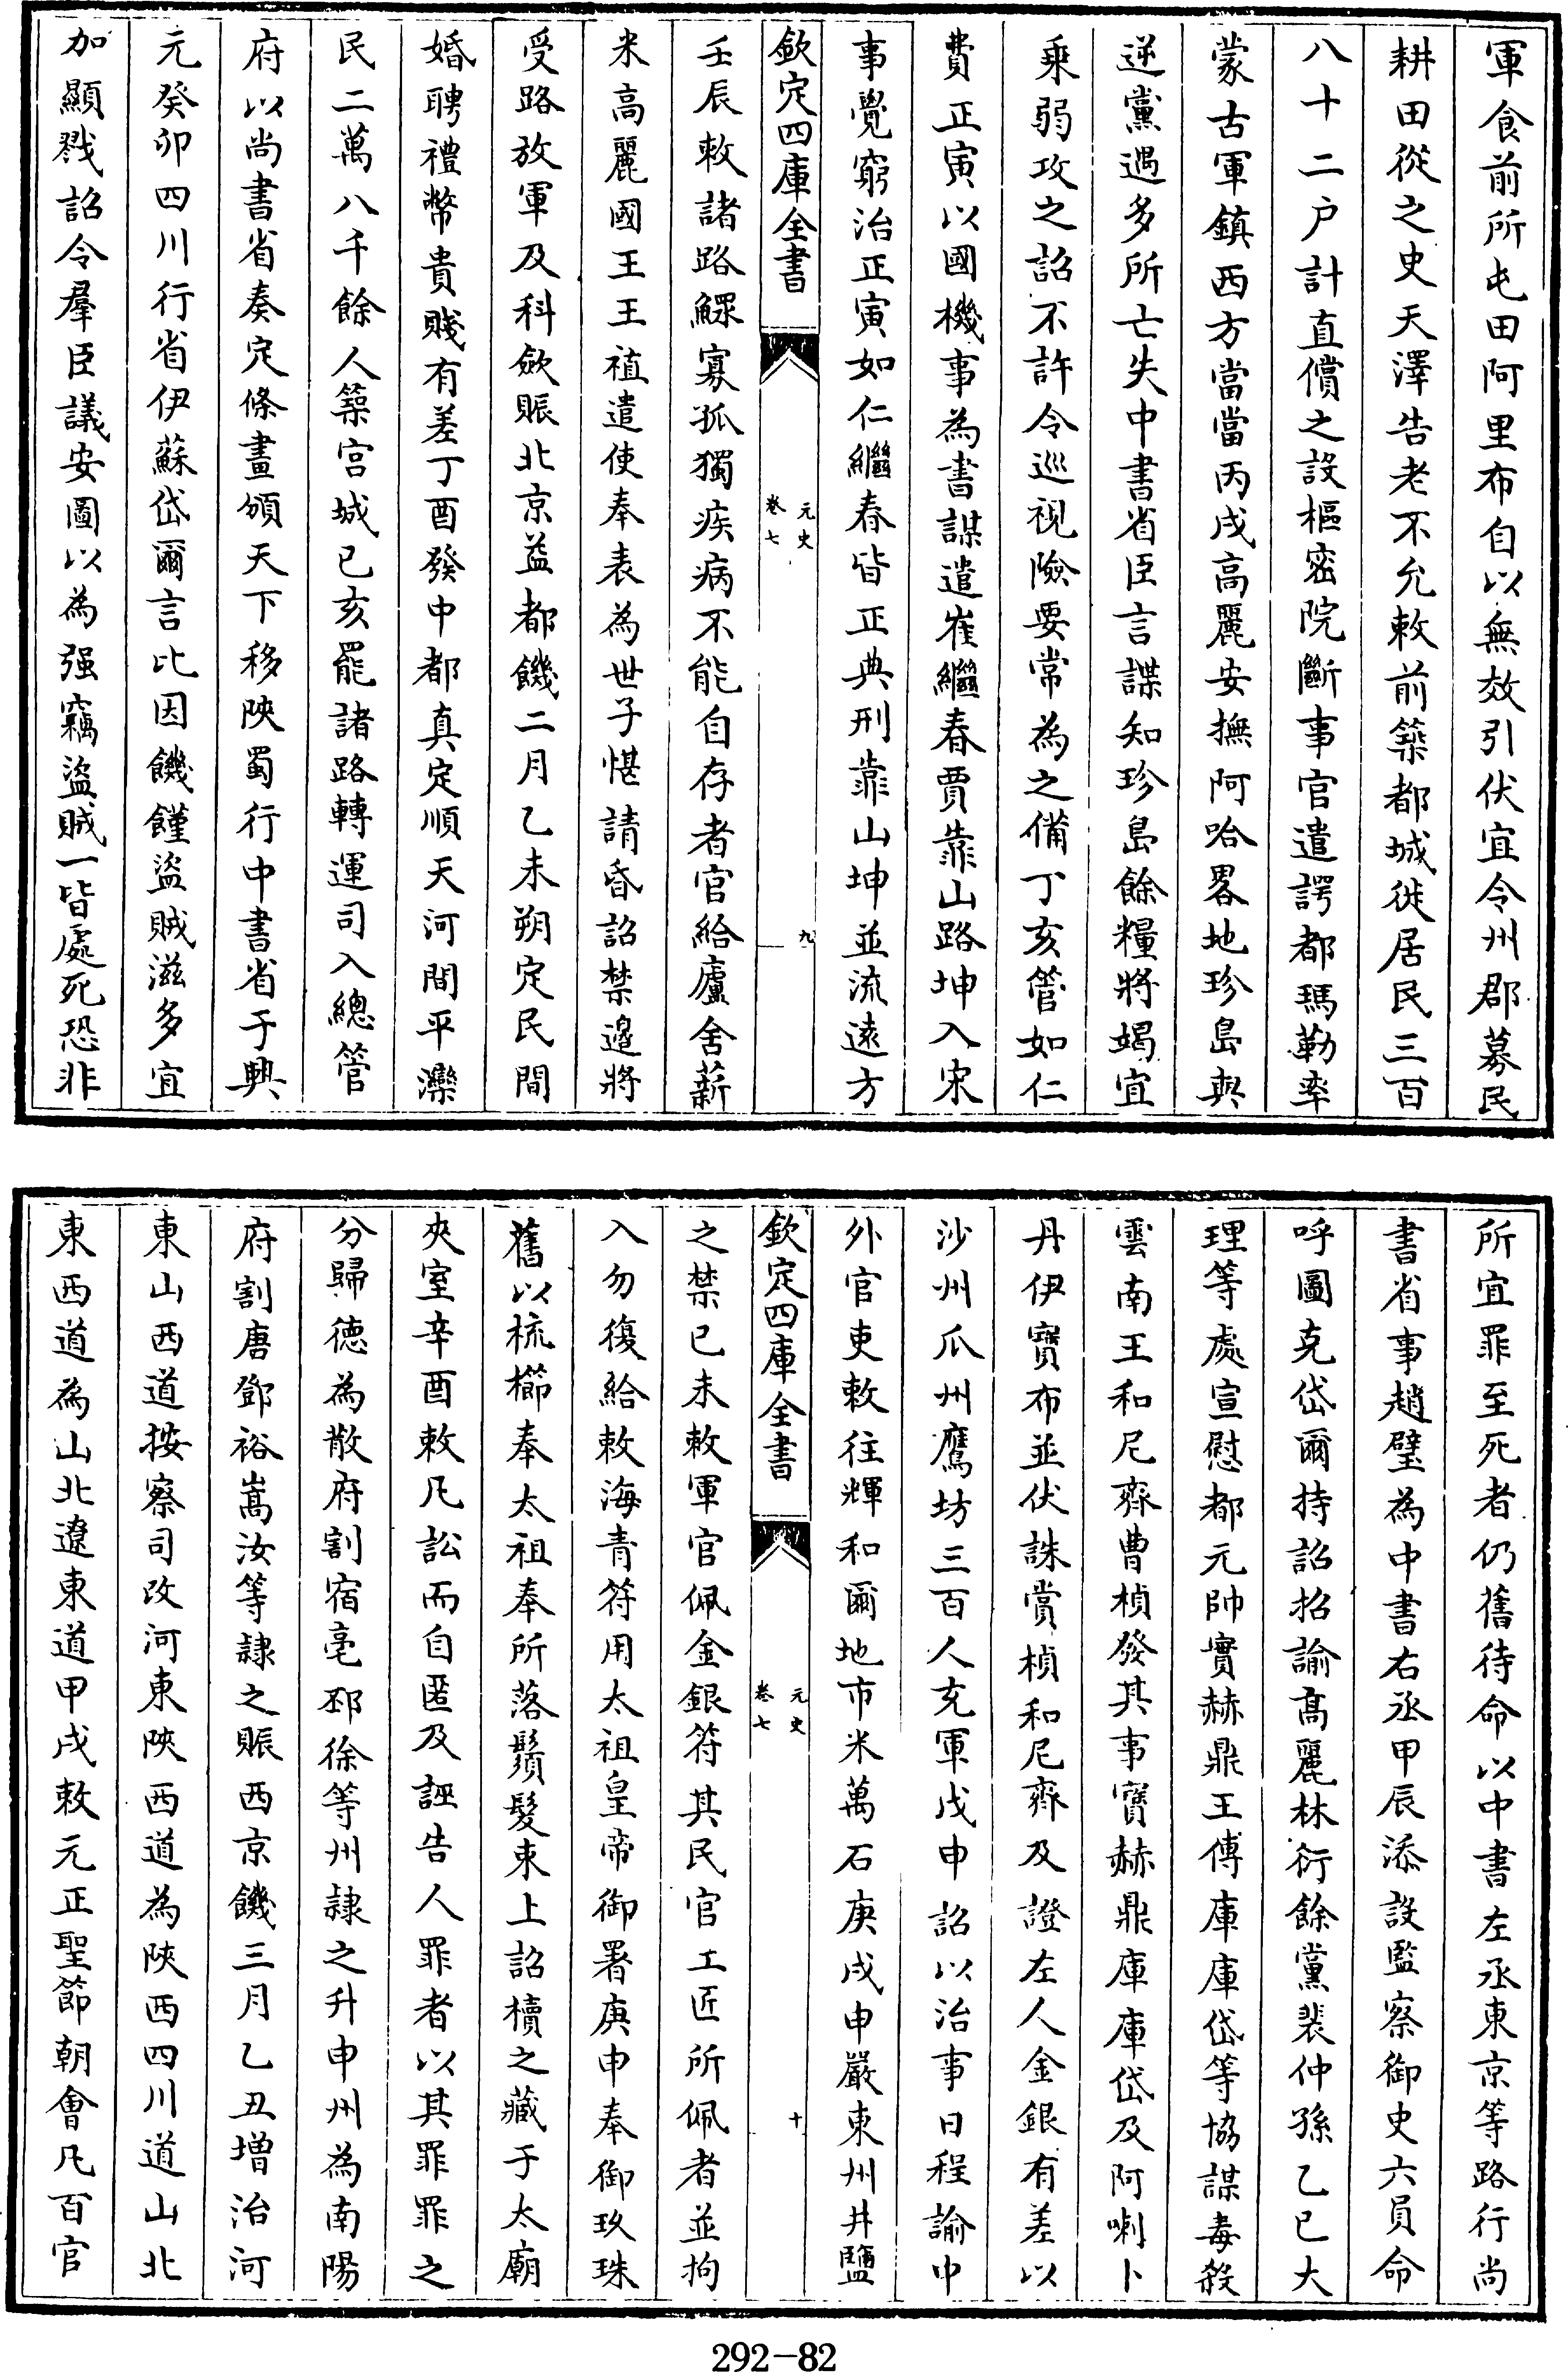 軍食前所屯田阿里布自以無效引伏宜令州郡募民
耕田從之史天澤告老不允敕前築都城徙居民三百
八十二户計直償之設樞密院斷事官遣諤都瑪勒率
蒙古軍鎮西方當當丙戌高麗安撫阿哈畧地珍島與
逆黨遇多所亡失中書省臣言諜知珍島餘糧將竭宜
乗弱攻之詔不許令巡視險要常為之備丁亥管如仁
費正寅以國機事為書謀遣崔繼春賈靠山路坤入宋
事覺窮治正寅如仁繼春皆正典刑靠山坤並流逺方
欽定四庫全書
元史
卷七
九
壬辰敕諸路鰥寡孤獨疾病不能自存者官給廬舍薪
米高麗國王王禃遣使奉表為世子愖請昏詔禁邉將
受路放軍及科歛賑北京益都饑二月乙未朔定民間
婚聘禮幣貴賤有差丁酉發中都真定順天河間平灤
民二萬八千餘人築宫城己亥罷諸路轉運司入總管
府以尚書省奏定條畫頒天下移陜蜀行中書省于興
元癸卯四川行省伊蘇岱爾言比因饑饉盜賊滋多宜
加顯戮詔令羣臣議安圖以為强竊盜賊一皆處死恐非
所宜罪至死者仍舊待命以中書左丞東京等路行尚
書省事趙璧為中書右丞甲辰添設監察御史六員命
呼圖克岱爾持詔招諭髙麗林衍餘黨裴仲孫乙巳大
理等處宣慰都元帥寶赫鼎王傅庫庫岱等協謀毒殺
雲南王和尼齊曹楨發其事寶赫鼎庫庫岱及阿喇卜
丹伊寶布並伏誅賞楨和尼齊及證左人金銀有差以
沙州瓜州鷹坊三百人充軍戊申詔以治事日程諭中
外官吏敕往輝和爾地市米萬石庚戌申嚴東州井鹽
欽定四庫全書
元史
卷七
十
之禁己未敕軍官佩金銀符其民官工匠所佩者並拘
入勿復給敕海青符用太祖皇帝御署庚申奉御玖珠
舊以梳櫛奉太祖奉所落鬚髮束上詔櫝之藏于太廟
夾室辛酉敕凡訟而自匿及誣告人罪者以其罪罪之
分歸德為散府割宿亳邳徐等州隸之升申州為南陽
府割唐鄧裕嵩汝等隸之賑西京饑三月乙丑増治河
東山西道按察司改河東陜西道為陜西四川道山北
東西道為山北遼東道甲戌敕元正聖節朝會凡百官
292-82